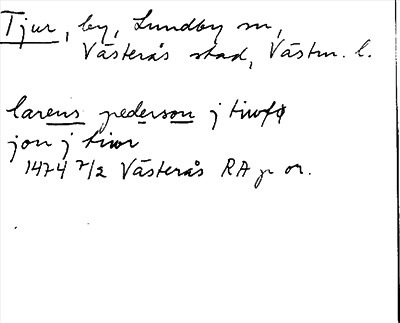 Tjur, by, Lundby sn,
Västerås stad, Västm. l.
larens pederson j tiwr
jon j tiwr
1474 7/2 Västerås RA p or.